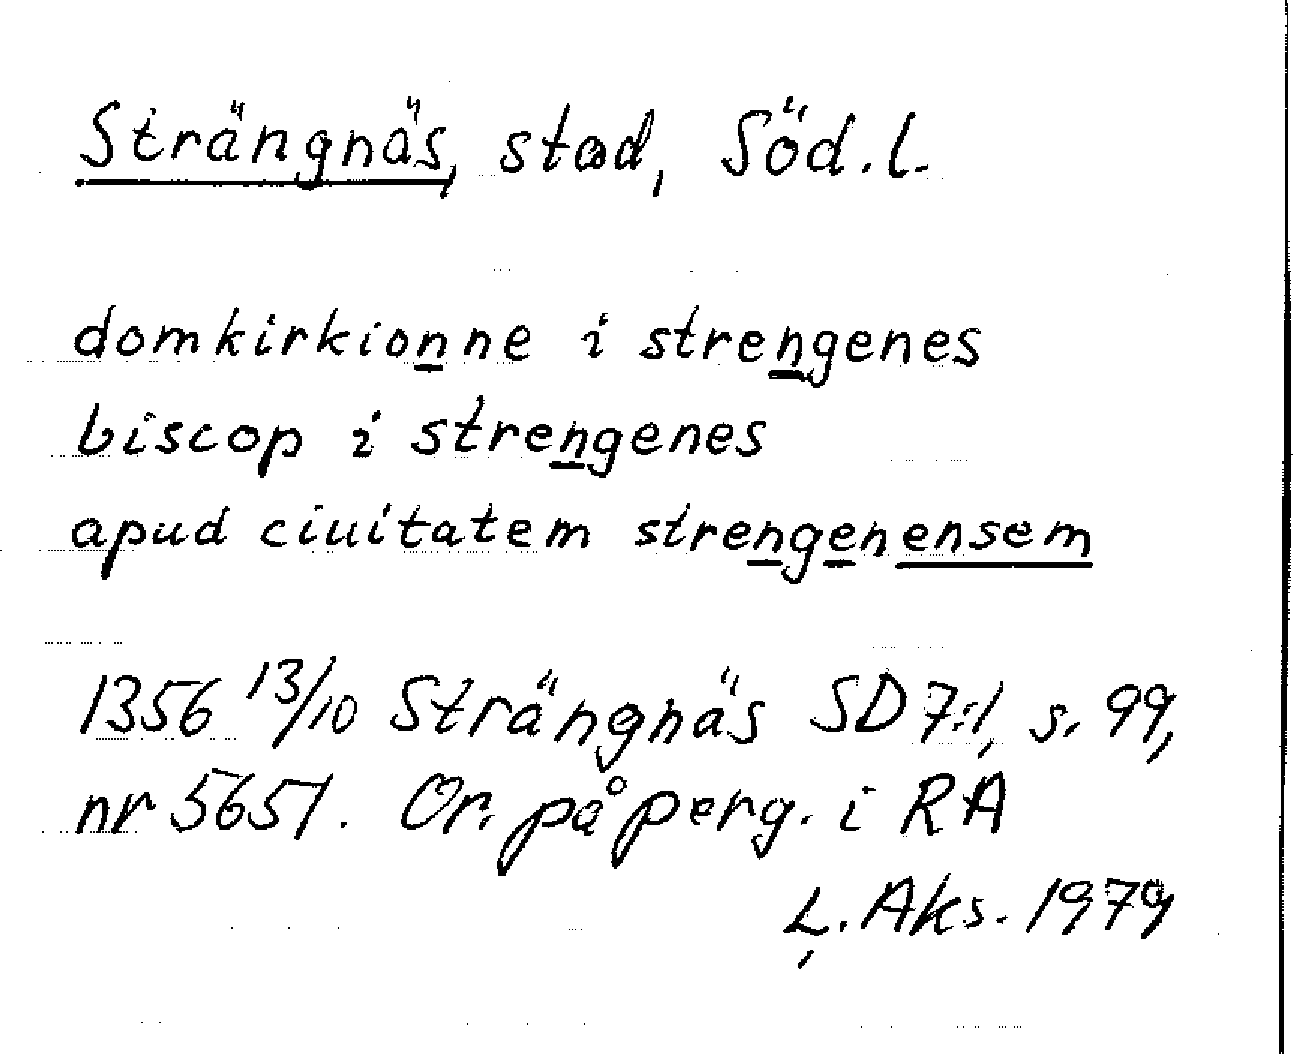 Strängnäs, stad, Söd. l.
domkirkionne i strengenes
biscop i strengenes
apud ciuitatem strengenensem
1356 13/10 Strängnäs SD 7:1, s. 99,
nr 5651. Or. på perg. i RA
L. Aks. 1979